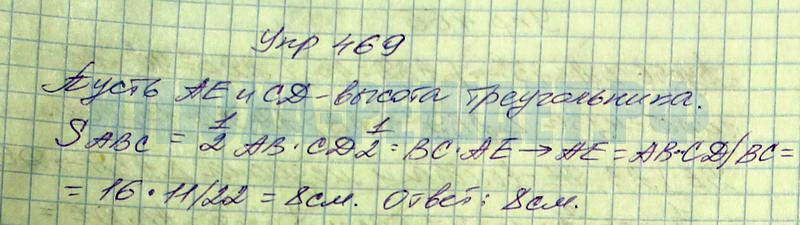 Упр 469
Пусть AE и CD - высота треугольника.
SABC = 1/2 AB · CD 1/2 = BC · AE → AE = AB · CD/BC =
= 16 · 11/22 = 8см. Ответ: 8см.